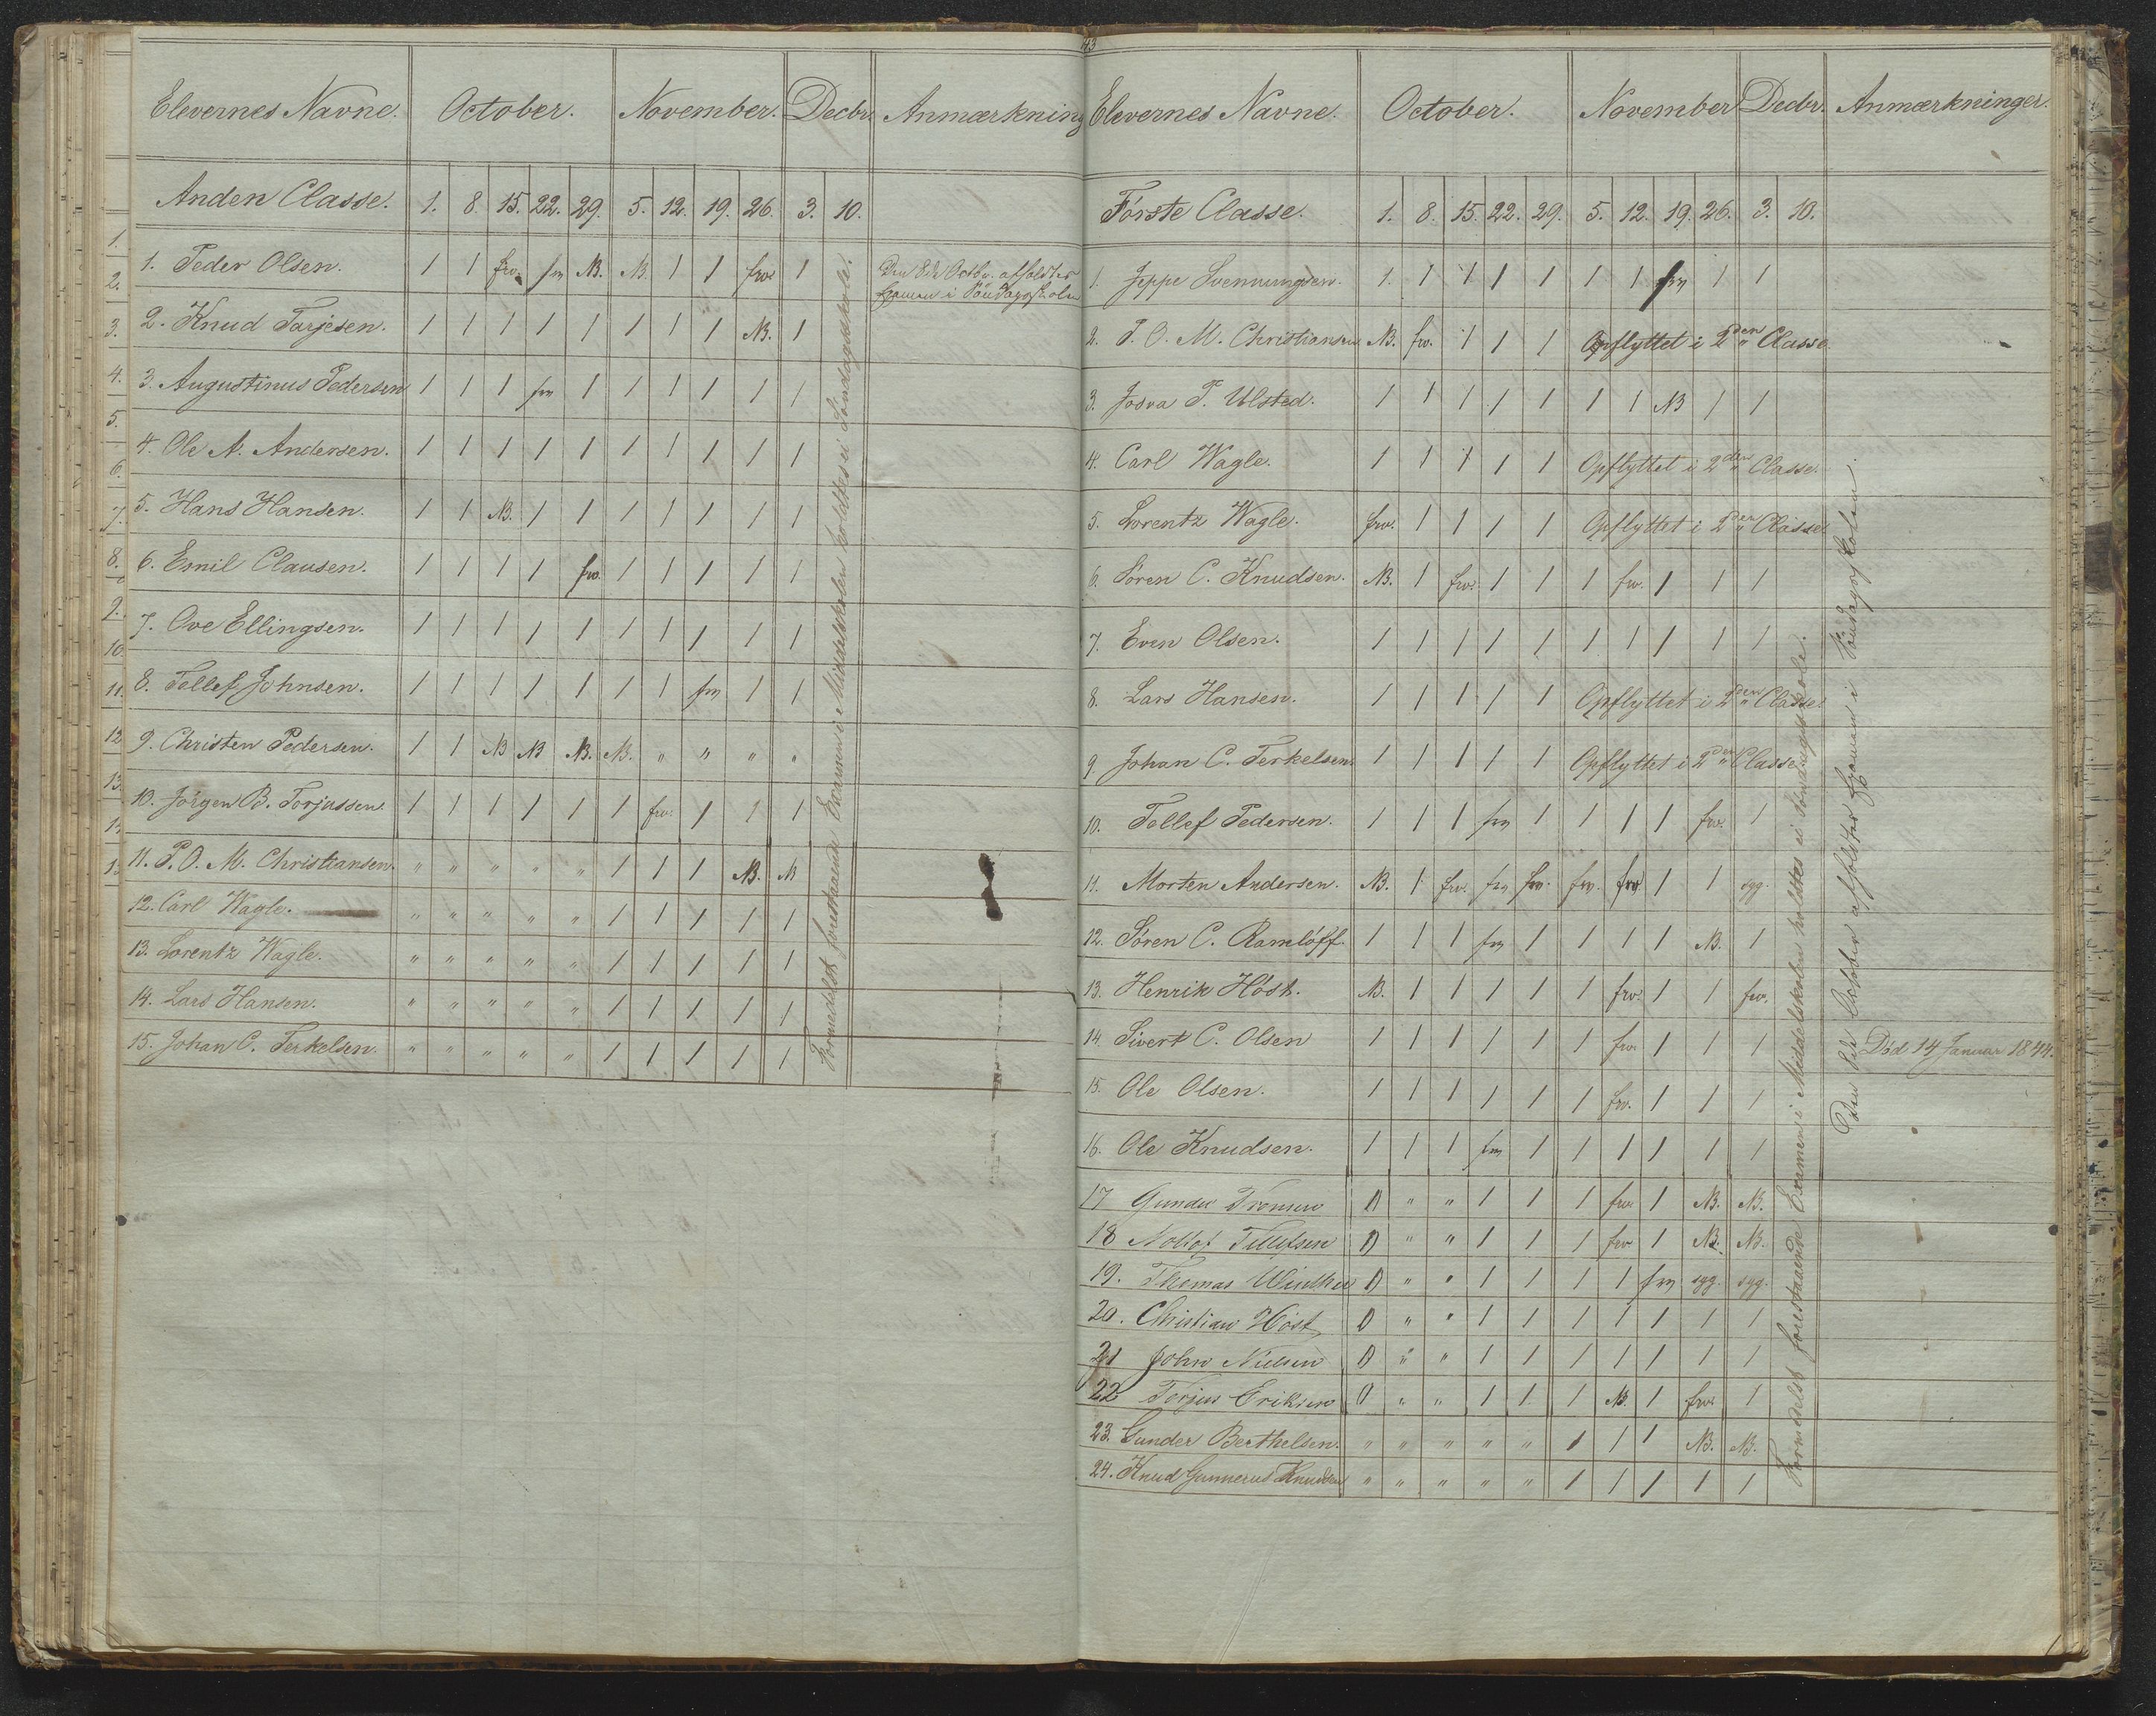 Elevernes Navne. October. November. Decbr. Anmærkning
Anden Classe. 1. 8. 15. 22. 29. 5. 12. 19. 26. 3. 10.
1. Peder Olsen. 1 1 frv. frv NB. NB. 1 1 frv. 1 Den 8de Octbr. afholdtes
Examen i Søndagsskolen
2. Knud Tarjesen. 1 1 1 1 1 1 1 1 NB. 1
3. Augustinus Pedersen 1 1 1 frv 1 1 1 1 1 1
4. Ole A. Andersen. 1 1 1 1 1 1 1 1 1 1
5. Hans Hansen. 1 1 NB. 1 1 1 1 1 1 1
6. Emil Clausen. 1 1 1 1 frv. 1 1 1 1 1
7. Ove Ellingsen. 1 1 1 1 1 1 1 1 1 1
8. Tellef Johnsen. 1 1 1 1 1 1 1 frv 1 1
9. Christen Pedersen. 1 1 NB NB NB. NB. " " " "
10. Jörgen B. Torjussen. 1 1 1 1 1 1 frv. 1 1 1
11. P. O. M. Christiansen. " " " " " 1 1 1 NB. NB
12. Carl Wagle. " " " " " 1 1 1 1 1
13. Lorentz Wagle. " " " " " 1 1 1 1 1
14. Lars Hansen. " " " " " 1 1 1 1 1
15. Johan C. Terkelsen. " " " " " 1 1 1 1 1
Formedelst forestaaende Examen i Middelskolen holdtes ei Søndagsskole.
1.
2.
3.
4.
5.
6.
7.
8.
9.
10.
11.
12
13.
43
Elevernes Navne. October. November Decbr. Anmærkninger.
Første Classe. 1. 8. 15. 22. 29. 5. 12. 19. 26. 3. 10.
1. Jeppe Svennungsen. 1. 1 1 1 1 1 1 frv 1 1
2. P. O. M. Christiansen NB. frv. 1 1 1 Opflyttet i 2den Classe
3. Josva P. Ulsted. 1 1 1 1 1 1 1 NB 1 1
4. Carl Wagle. 1 1 1 1 1 Opflyttet i 2den Classe.
5. Lorentz Wagle. frv. 1 1 1 1 Opflyttet i 2den Classe
6. Søren C. Knudsen. NB. 1 frv. 1 1 1 frv. 1 1 1
7. Even Olsen. 1 1 1 1 1 1 1 1 1 1
8. Lars Hansen. 1 1 1 1 1 Opflyttet i 2den Classe
9. Johan C. Terkelsen. 1 1 1 1 1 Opflyttet i 2den Classe
10. Tellef Pedersen. 1 1 1 frv 1 1 1 1 frv. 1
11. Morten Andersen. NB. 1 frv. frv frv. frv. frv. 1 1 syg.
12. Søren C. Ramlöff. 1 1 1 frv 1 1 1 1 NB. 1
13. Henrik Høst. NB. 1 1 1 1 1 frv. 1 1 frv.
14 Sivert C. Olsen 1 1 1 1 1 1 frv 1 1 1 Död 14 Januar 1844.
15. Ole Olsen. 1 1 1 1 1 1 frv. 1 1 1
16. Ole Knudsen. 1 1 1 frv 1 1 1 1 1 1
17 Gunder " " 1 1 1 frv 1 NB. NB.
18 Tellefsen " " 1 1 1 frv 1 NB. NB.
19. Thomas Winther " " 1 1 1 1 frv syg. syg.
20. Christian Høst " " 1 1 1 1 1 1 1
21 John Nielsen " " 1 1 1 1 1 1 1
22 Torjus Eriksen " " 1 1 1 NB. 1 frv. 1
23. Gunder Berthelsen. " " " " " 1 1 1 NB. NB.
24. Knud Gunnerus Knudsen " " " " " 1 1 1 1 1
Formedelst forestaaende Examen i Middelskolen holdtes ei Søndagsskole.
Den 8de October afholdtes Examen i Søndagsskolen.